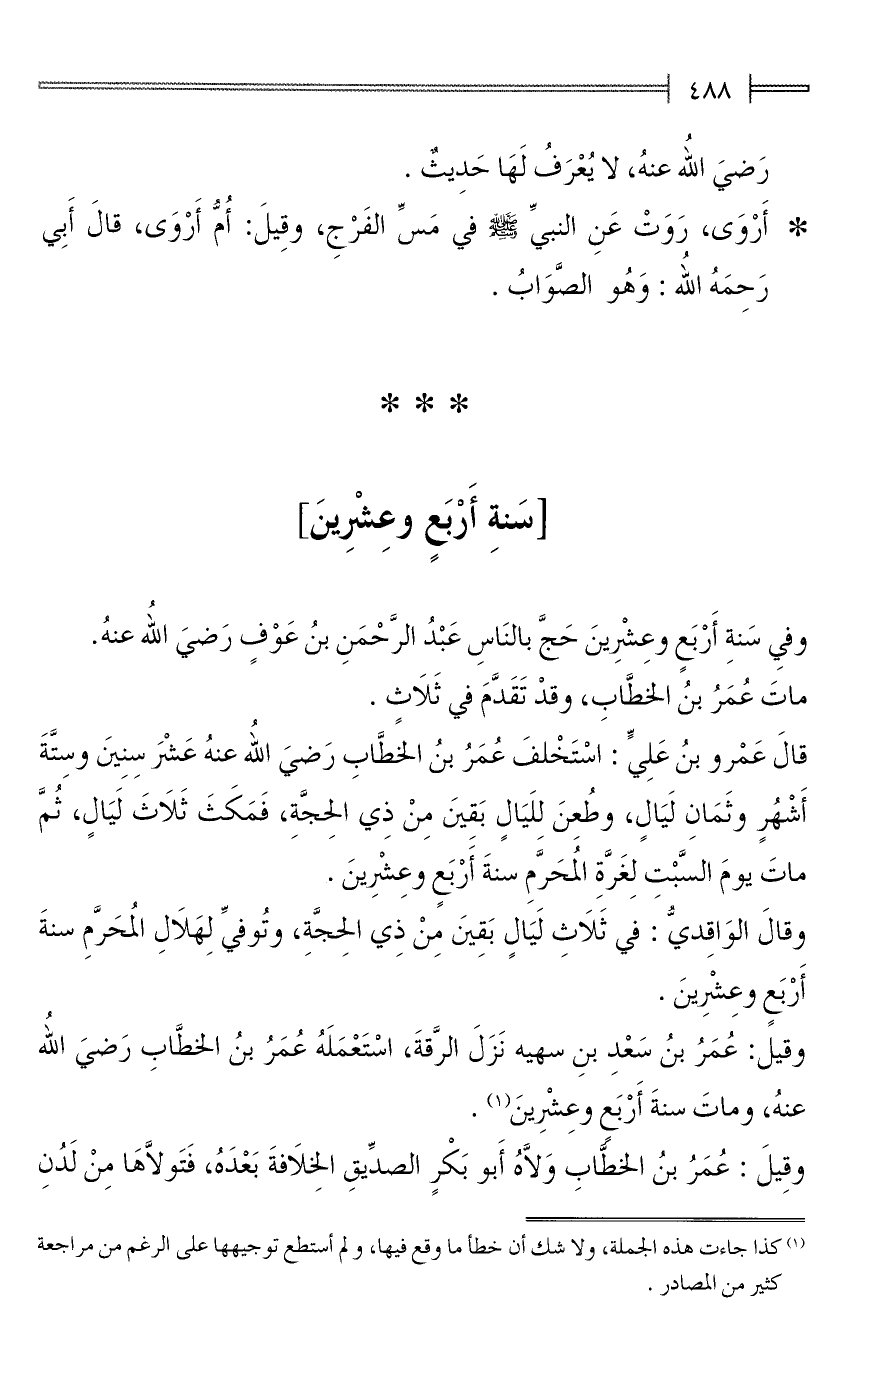 ٤٨٨
رَضيَ اللهُ عنهُ، لا يُعْرَفُ لَهَا حَدِيثٌ .
* أَرْوَى، رَوَتْ عَنِ النبيِّ ﷺ في مَسِّ الفَرْجِ، وقِيلَ: أُمُّ أَرْوَى، قالَ أَبِي
رَحِمَهُ اللهُ : وَهُو الصَّوَابُ .
* * *
[سَنةِ أَرْبَعٍ وعِشْرِينَ]
وفي سَنةِ أَرْبَعٍ وعِشْرِينَ حَجَّ بالنَاسِ عَبْدُ الرَّحْمَنِ بنُ عَوْفٍ رَضيَ اللهُ عنهُ.
ماتَ عُمَرُ بنُ الخطَّابِ، وقدْ تَقَدَّمَ في ثَلَاثٍ .
قالَ عَمْرو بنُ عَليٍّ : اسْتَخْلفَ عُمَرُ بنُ الخطَّابِ رَضيَ اللهُ عنهُ عَشْرَ سِنِينَ وستَّةَ
أَشْهُرٍ وثَمَانِ لَيَالٍ، وطُعِنَ لِلَيَالٍ بَقِينَ مِنْ ذِي الحِجَّةِ، فَمَكَثَ ثَلَاثَ لَيَالٍ، ثُمَّ
ماتَ يومَ السَّبْتِ لِغَرَّةِ المُحَرَّمِ سنةَ أَرْبَعٍ وعِشْرِينَ .
وقالَ الوَاقِديُّ : في ثَلَاثِ لَيَالٍ بَقِينَ مِنْ ذِي الحِجَّةِ، وتُوفيِّ لِهَلَالِ المُحَرَّمِ سنةَ
أَرْبَعٍ وعِشْرِينَ .
وقيلَ: عُمَرُ بنُ سَعْدِ بنِ سهيه نَزَلَ الرَّقةَ، اسْتَعْمَلَهُ عُمَرُ بنُ الخطَّابِ رَضيَ اللهُ
عنهُ، وماتَ سنةَ أَرْبَعٍ وعِشْرِينَ(١) .
وقِيلَ : عُمَرُ بنُ الخطَّابِ وَلاَّهُ أَبو بَكْرٍ الصدِّيقِ الخِلَافةَ بَعْدَهُ، فَتَولاَّهَا مِنْ لَدُنِ
(١) كذا جاءت هذه الجملة، ولا شك أن خطأ ما وقع فيها، و لم أستطع توجيهها على الرغم من مراجعة
كثير من المصادر .